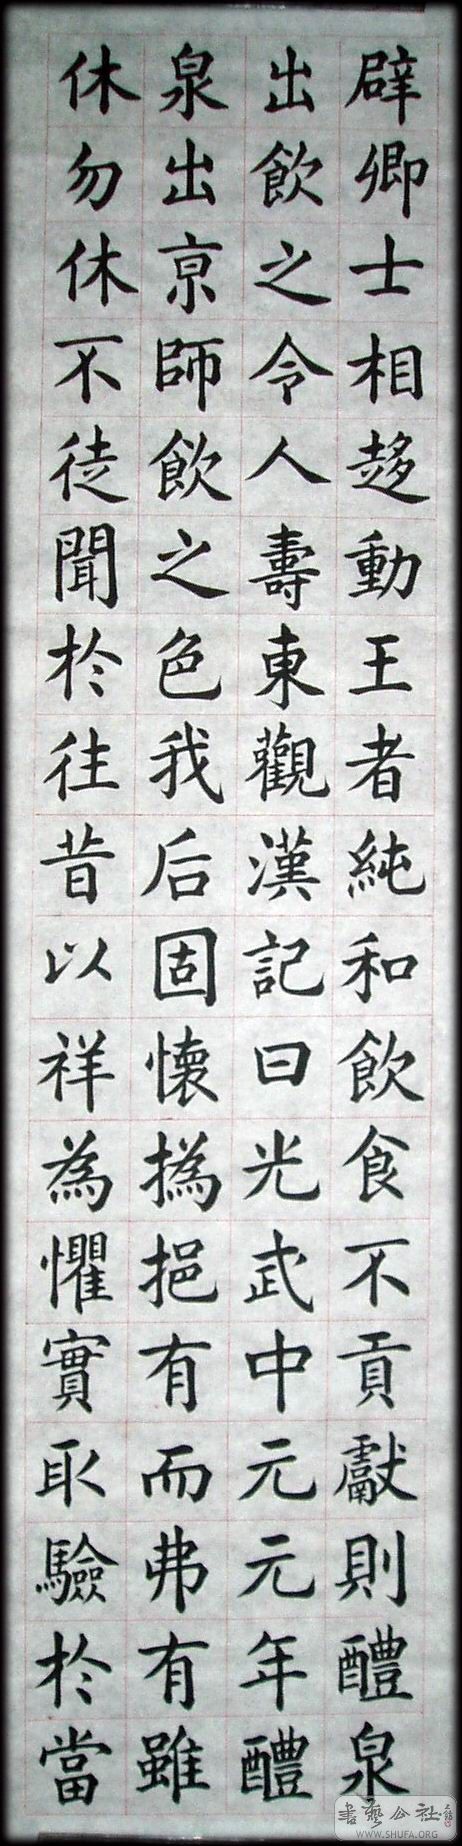 辟卿士相趍動王者純和飲食不貢獻則醴泉
出飲之令人壽東觀漢記曰光武中元元年醴
泉出亰師飲之色我后固懷撝挹有而弗有雖
休勿休不徒聞於往昔以祥為懼實取驗於當
書藝公社
WWW.SHUFA.ORG